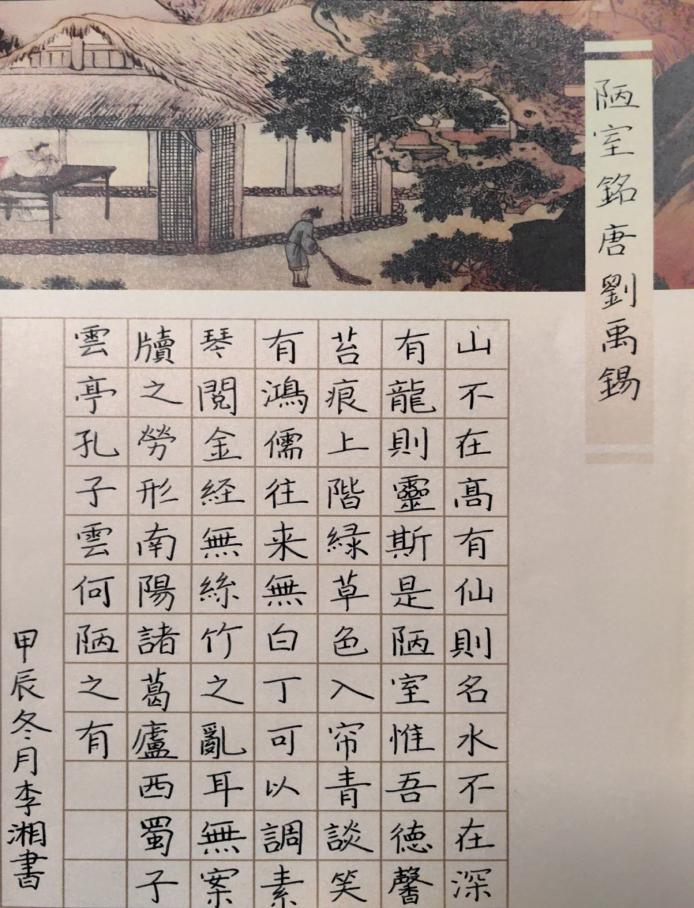 陋室銘唐劉禹錫
山不在高有仙則名水不在深
有龍則靈斯是陋室惟吾德馨
苔痕上階緑草色入帘青談笑
有鴻儒往来無白丁可以調素
琴閲金経無絲竹之亂耳無案
牘之勞形南陽諸葛廬西蜀子
雲亭孔子雲何陋之有
甲辰冬月李湘書